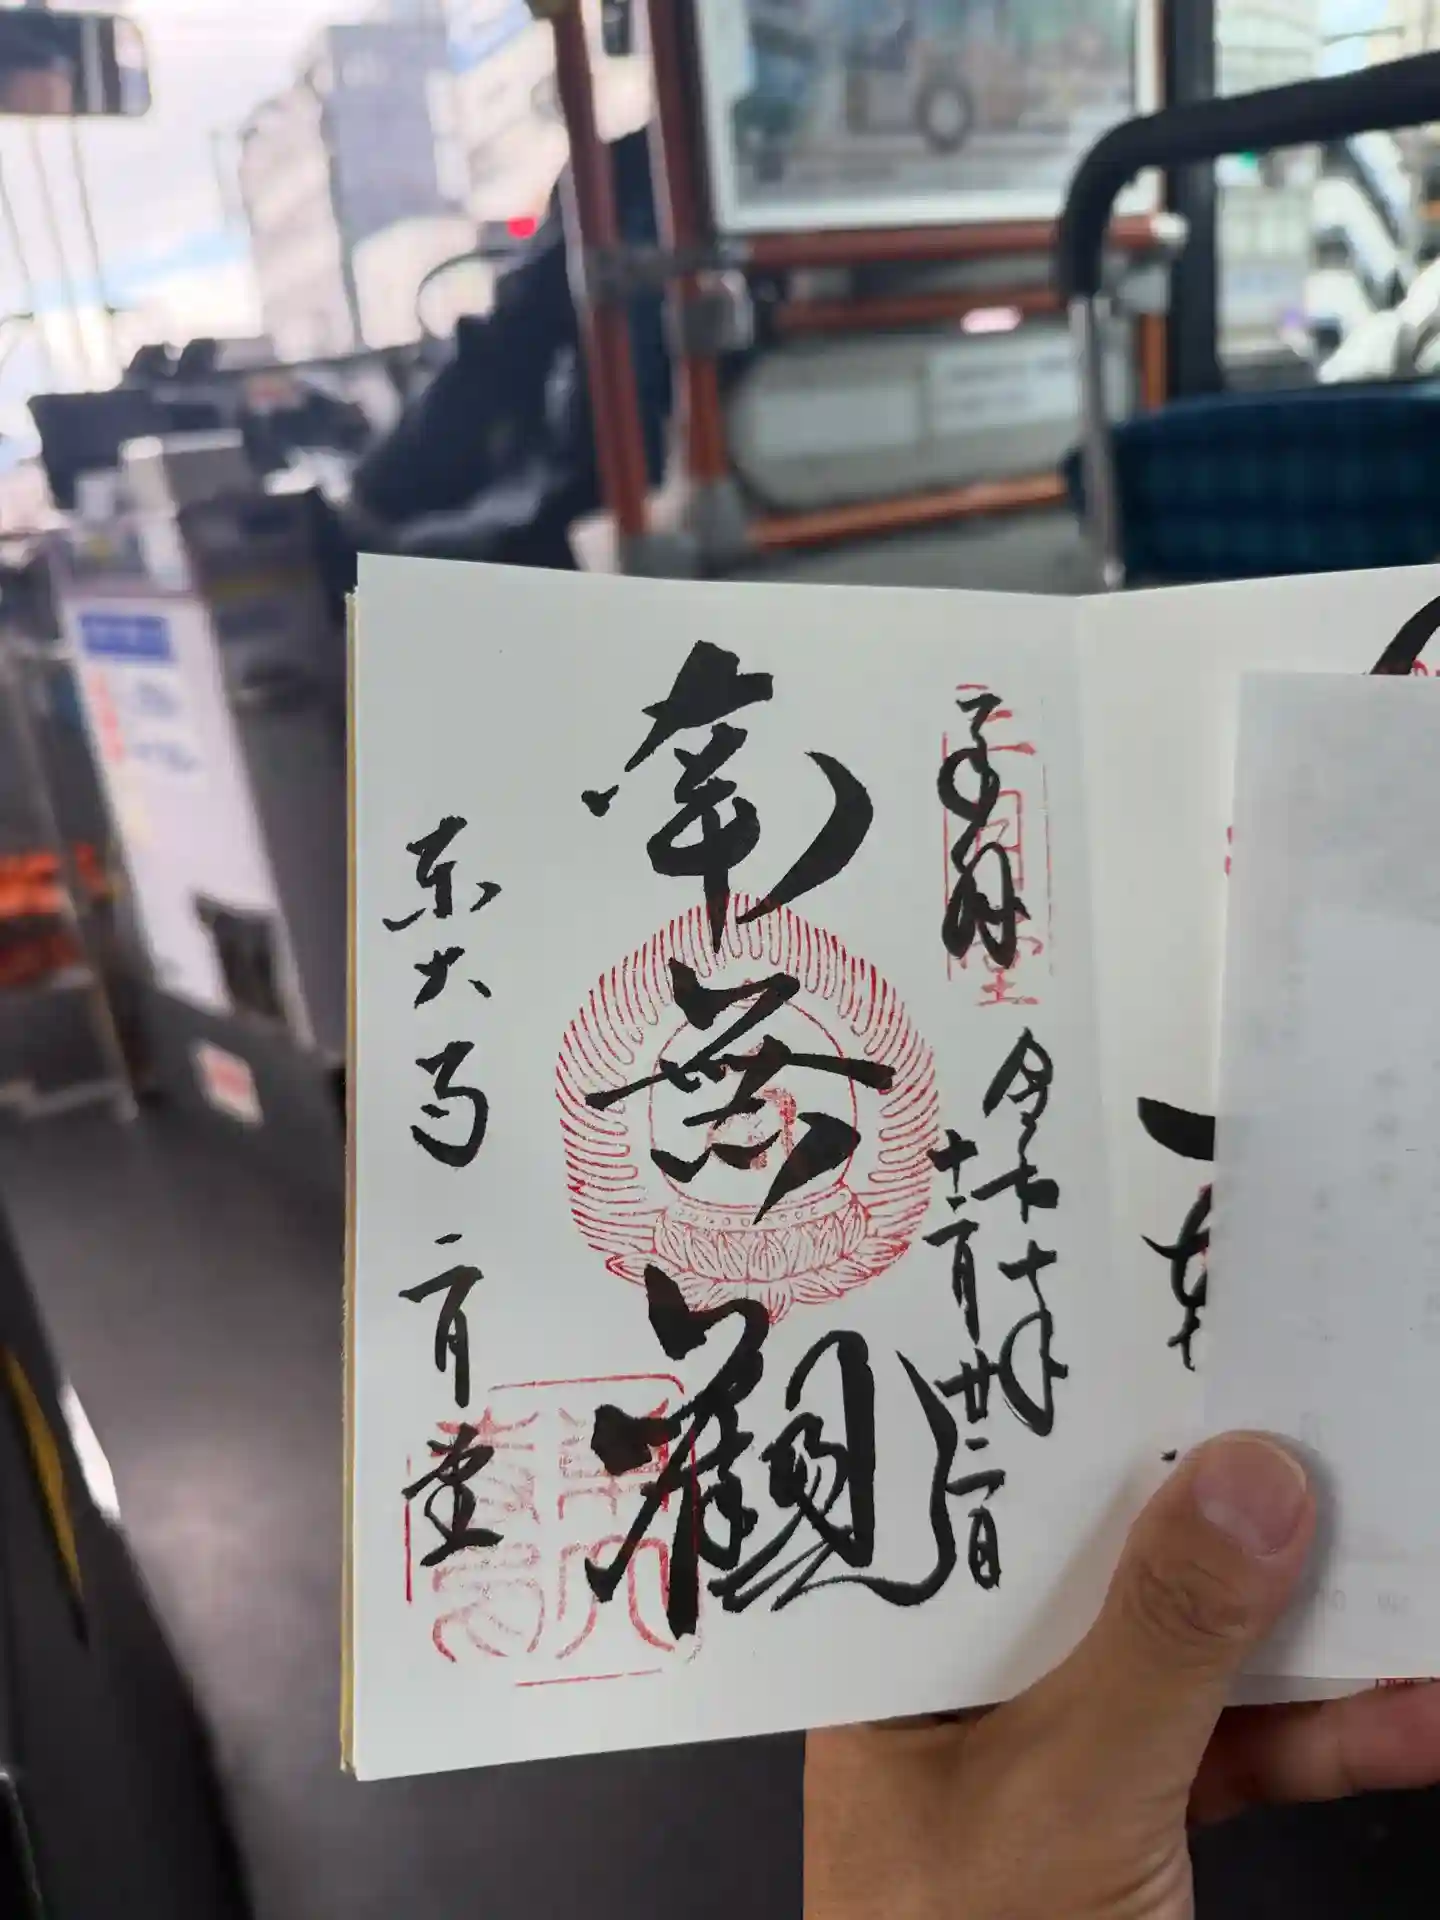 奉拝
二月堂
令和七年
十二月廿二日
南無觀
東大寺 二月堂